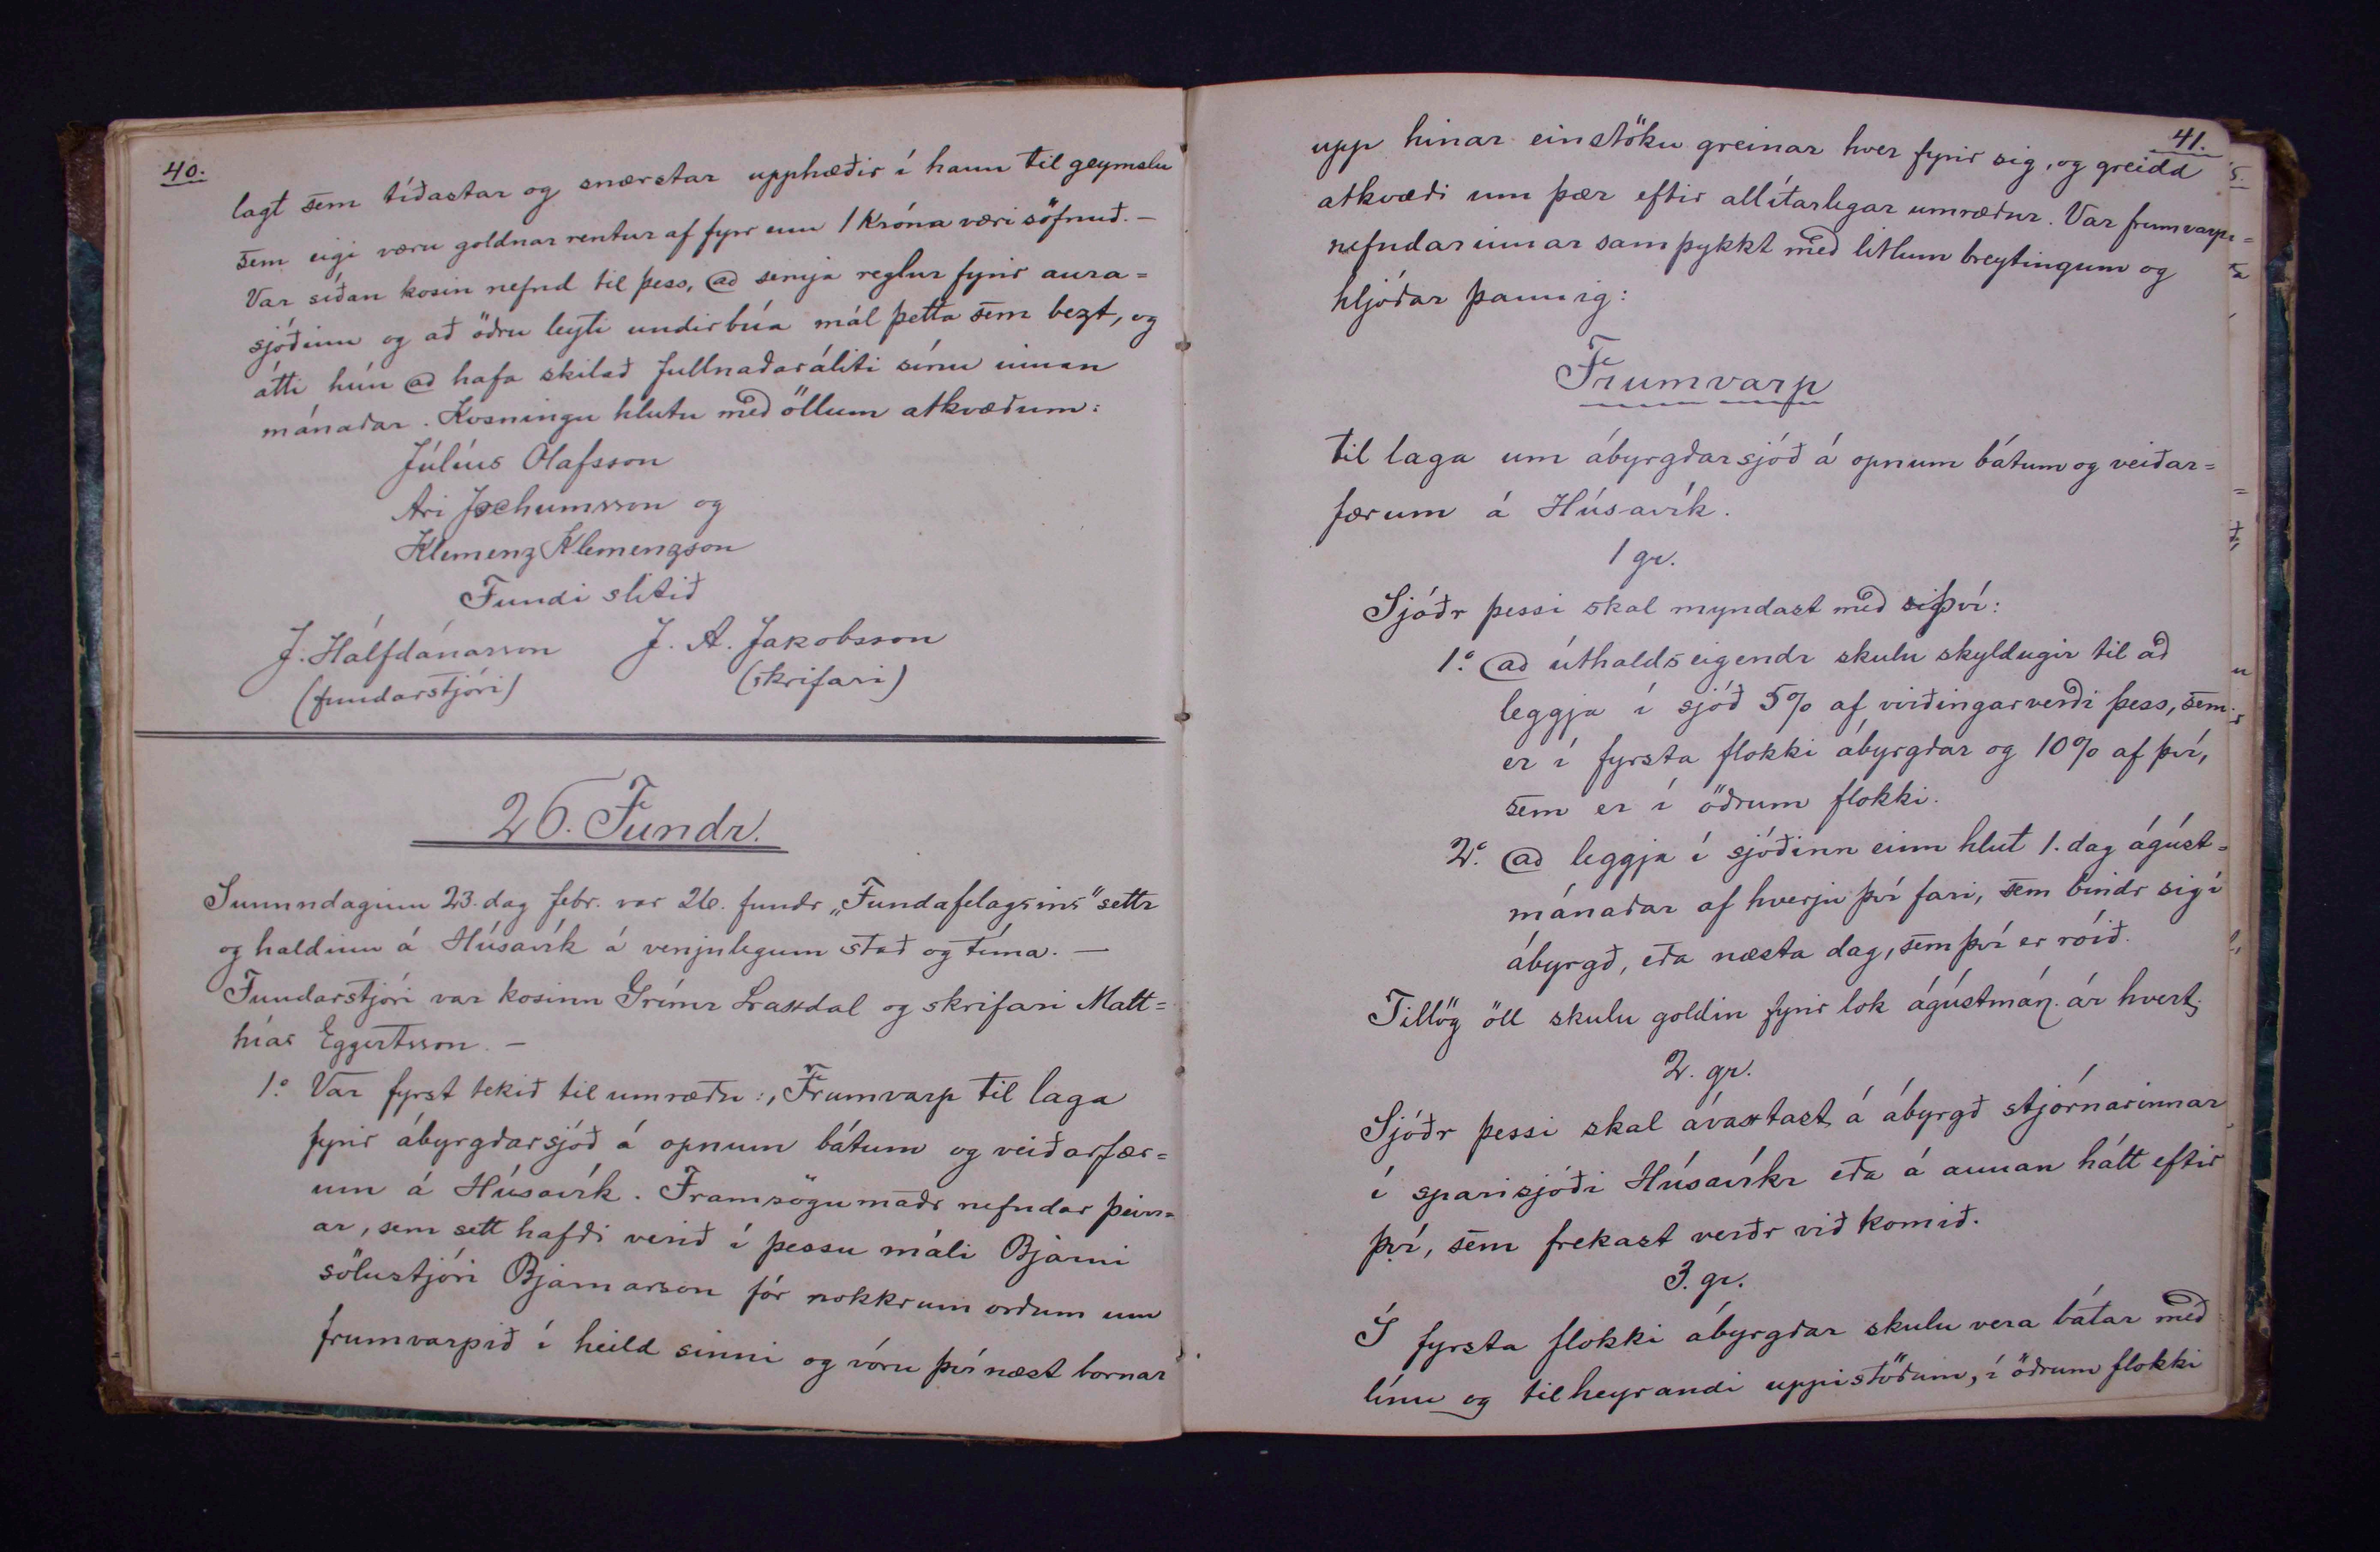 40.
lagt sem tíðastar og snærstar upphæðir í hann til geymslu
sem eigi væru goldnar rentur af fyrr enn 1 Króna væri söfnuð. —
Var síðan kosin nefnd til þess, að semja reglur fyrir aura=
sjóðinn og að öðru leyti undirbúa mál þetta sem bezt, og
átti hún að hafa skilað fullnaðaráliti sínu innan
mánaðar. Kosningu hlutu með öllum atkvæðum:
Júlíus Olafsson
Ari Jochumsson og
Klemenz Klemenzson
Fundi slitið
J. Hálfdánarson J. A. Jakobsson
(fundarstjóri) (skrifari)
26. Fundr.
Sunnndaginn 23. dag febr. var 26. fundr „Fundafelagsins“ settr
og haldinn á Húsavík á venjulegum stað og tíma. —
Fundarstjóri var kosinn Grímr Laxdal og skrifari Matt=
hías Eggertsson. —
1.° Var fyrst tekið til umræðu: „Frumvarp til laga
fyrir ábyrgðarsjóð á opnum bátum og veiðarfær=
um á Húsavík. Framsögumaðr nefndar þeirr=
ar, sem sett hafði verið í þessu máli Bjarni
sölustjóri Bjarnarson fór nokkrum orðum um
frumvarpið í heild sinni og vóru því næst bornar
41.
upp hinar einstöku greinar hver fyrir sig, og greidd
atkvæði um þær eftir allítarlegar umræður. Var frumvarp
nefndarinnar samþykkt með litlum breytingum og
hljóðar þannig:
Frumvarp
til laga um ábyrgðarsjóð á opnum bátum og veiðar=
færum á Húsavík.
1 gr.
Sjóðr þessi skal myndast með því:
1.° að úthaldseigendr skulu skyldugir til að
leggja í sjóð 5% af virðingarverði þess, sem
er í fyrsta flokki ábyrgðar og 10% af því,
sem er í öðrum flokki.
2.° að leggja í sjóðinn einn hlut 1. dag ágúst=
mánaðar af hverju því fari, sem bindr sig í
ábyrgð, eða næsta dag, sem því er róið.
Tillög öll skulu goldin fyrir lok ágústmán. ár hvert.
2. gr.
Sjóðr þessi skal ávaxtast á ábyrgð stjórnarinnar
í sparisjóði Húsavíkr eða á annan hátt eftir
því, sem frekast verðr við komið.
3. gr.
Í fyrsta flokki ábyrgðar skulu vera bátar með
línu og tilheyrandi uppistöðum, í öðrum flokki